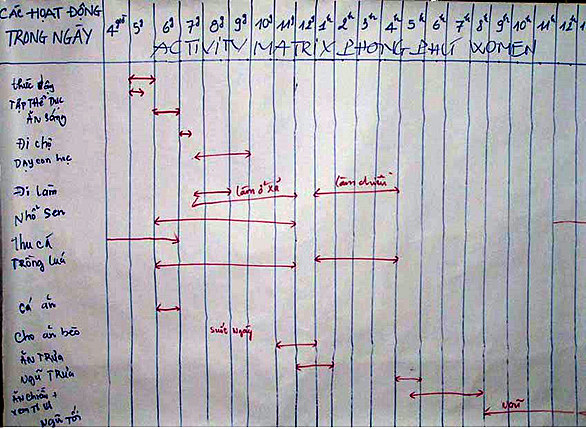 CÁC HOẠT ĐỘNG
TRONG NGÀY
4ᵍⁱờ 5ᵍ 6ᵍ 7ᵍ 8ᵍ 9ᵍ 10ᵍ 11ᵍ 12ᵍ 1ʰ 2ʰ 3ʰ 4ʰ 5ʰ 6ʰ 7ʰ 8ʰ 9ʰ 10ʰ 11ʰ 12ʰ
ACTIVITY MATRIX PHONG PHU WOMEN
thức dậy
TẬP THỂ DỤC
ĂN SÁNG
Đi chợ
DẠY CON HỌC
Đi làm làm ở xã làm chiều
Nhổ Sen
Thu cá
Trồng luá
cá ăn
Cho ăn bèo suốt ngày
ĂN TRƯA
NGỦ TRƯA
ĂN chiều +
xem Ti vi
NGỦ TỐI NGỦ